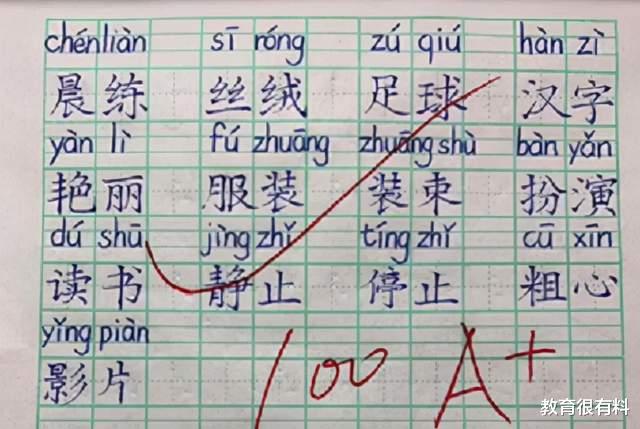 chénliàn sī róng zú qiú hàn zì
晨练 丝绒 足球 汉字
yàn lì fú zhuāng zhuāng shù bàn yǎn
艳丽 服装 装束 扮演
dú shū jìng zhǐ tíng zhǐ cū xīn
读书 静止 停止 粗心
yǐng piàn
影片
100 A+
教育很有料